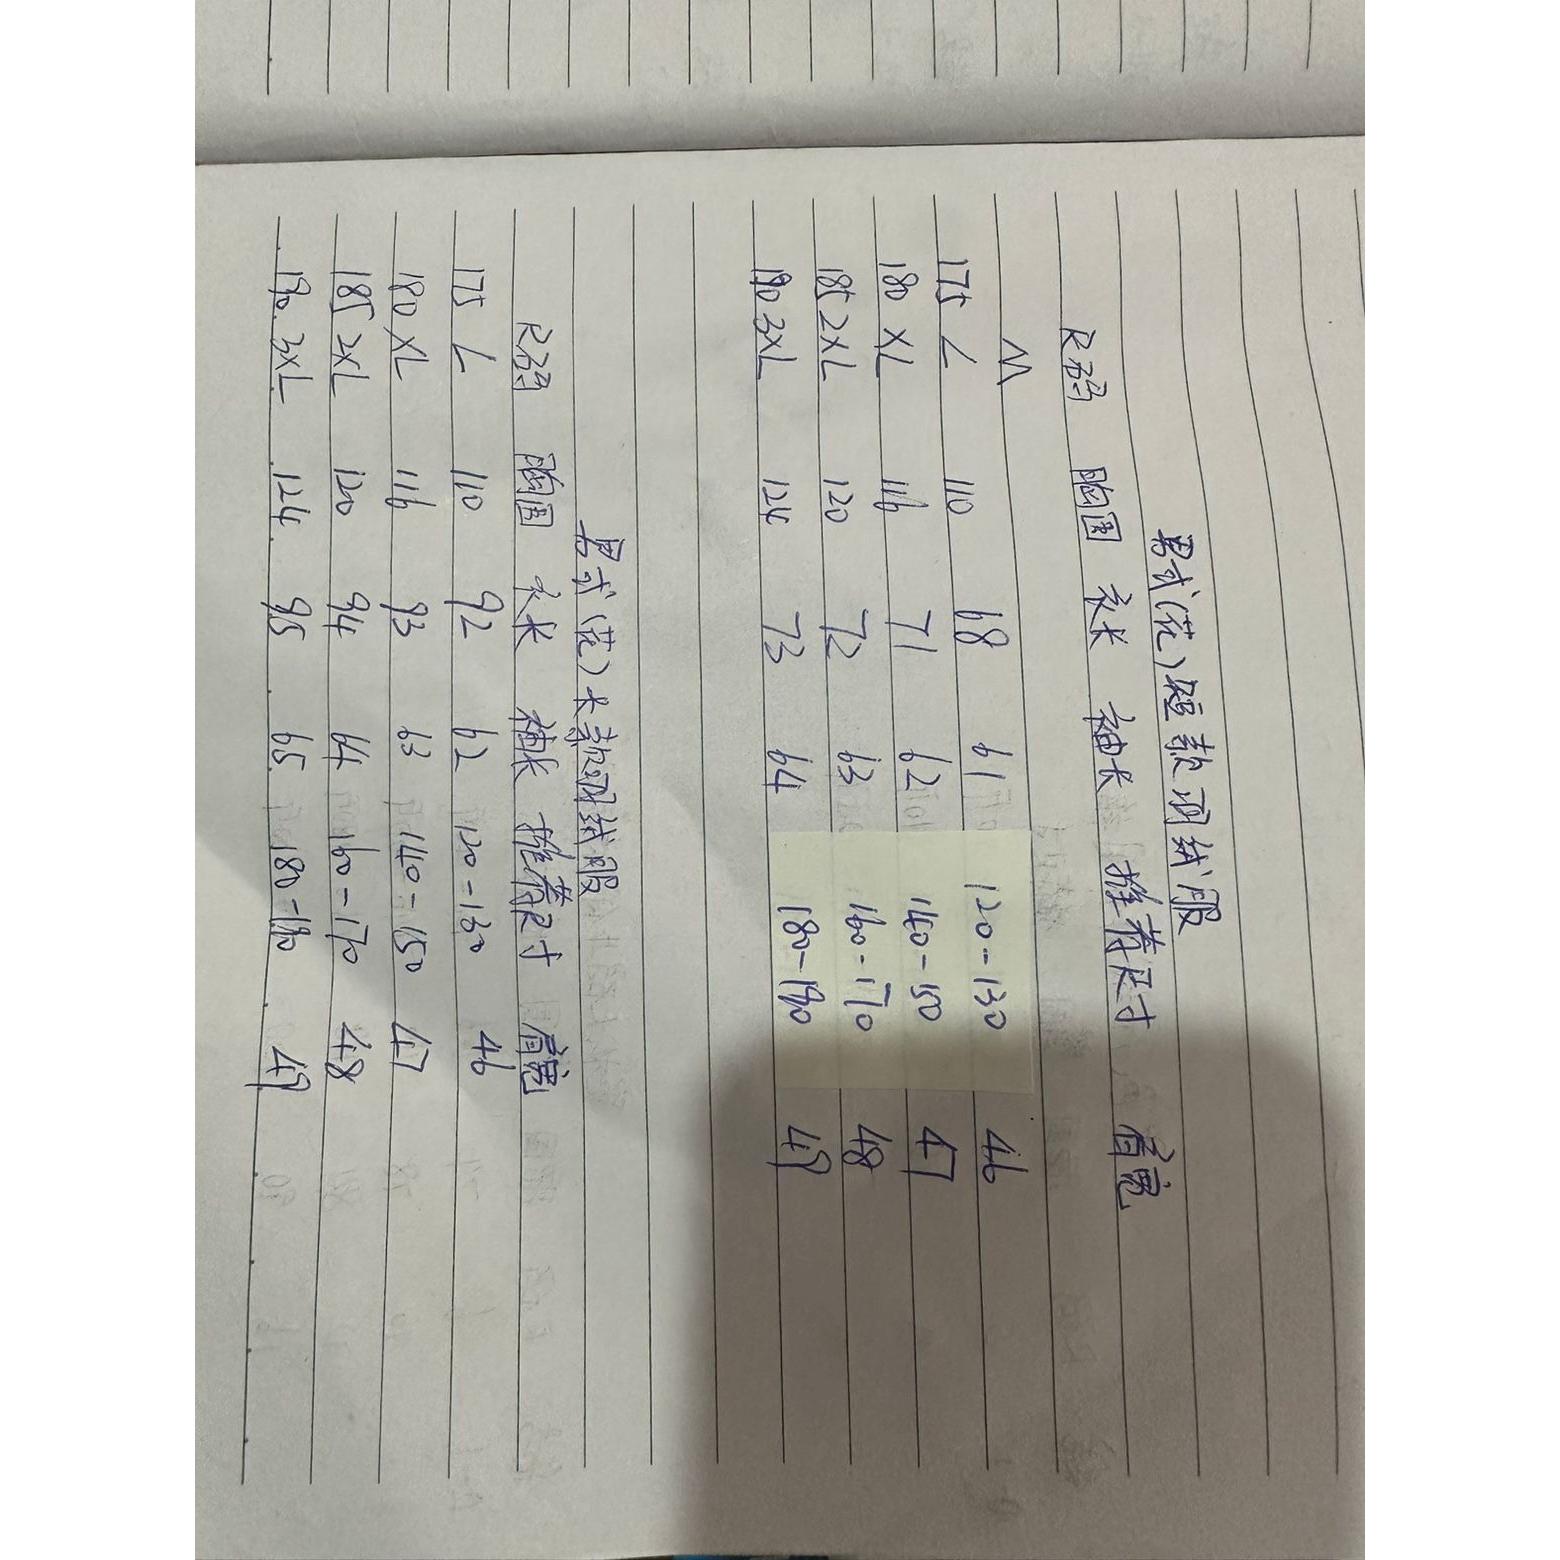 男式(花)短款羽绒服
尺码 胸围 衣长 袖长 推荐尺寸 肩宽
M
175 L 110 68 61 120-130 46
180 XL 116 71 62 140-150 47
185 2XL 120 72 63 160-170 48
190 3XL 124 73 64 180-190 49
男式(花)长款羽绒服
尺码 胸围 衣长 袖长 推荐尺寸 肩宽
175 L 110 92 62 120-130 46
180 XL 116 93 63 140-150 47
185 2XL 120 94 64 160-170 48
190 3XL 124 95 65 180-190 49